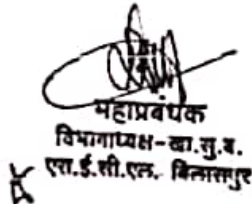 महाप्रबंधक
विभागाध्यक्ष-खा.सु.ब.
एस.ई.सी.एल. बिलासपुर